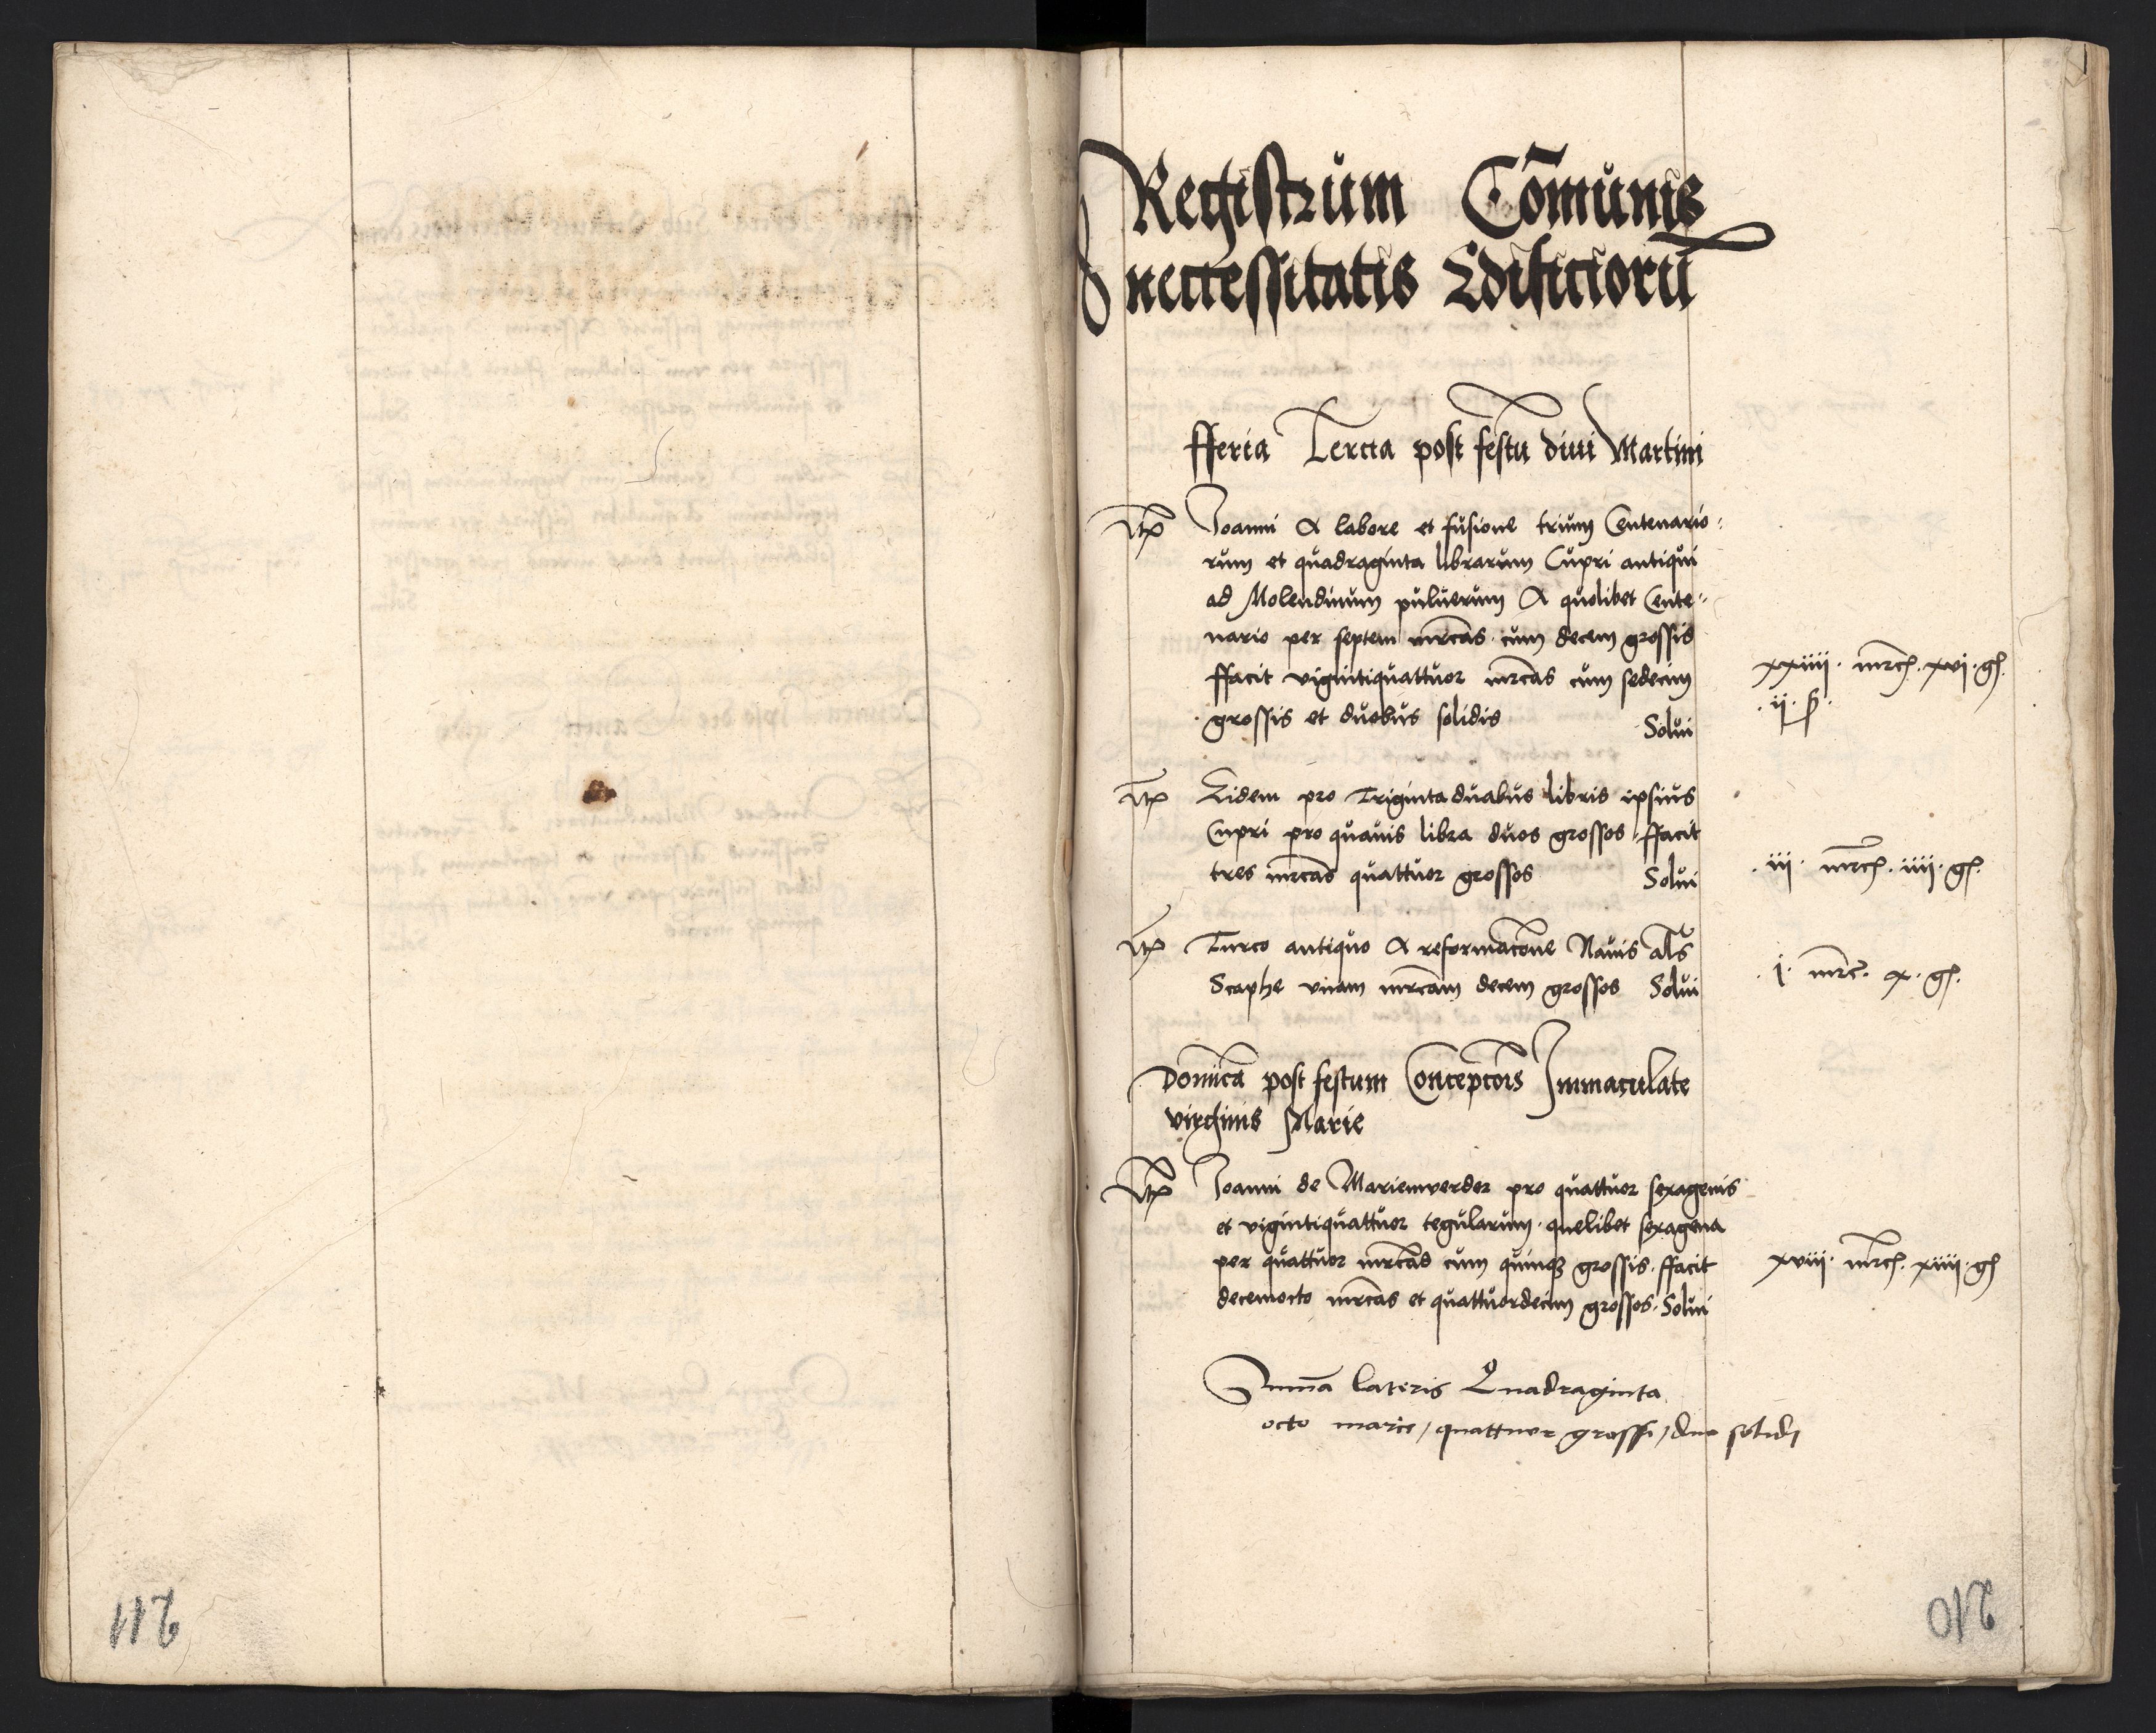 Registrum Com̄unis
necessitatis Edificiorū
fferia Tercia post festū diui Martini
Itē Joanni A labore et fusione trium Centenario꞊
rum et quadraginta librarum Cupri antiqui
ad Molendinum puluerum A quolibet Cente꞊
nario per septem mr̄cas cum decem grossis
ffacit vigintiquattuor mr̄cas cum sedecim
grossis et duobus solidis Solui
xxiiii · mr̄c · xvi · g̃
· ii · ß ·
Itē Eidem pro Trigintaduabus libris ipsius
Cupri pro quauis libra duos grossos ffacit
tres mr̄cas quattuor grossos Solui
· iii · mr̄c · iiii · g̃
Itē Turco antiquo A reformac̄one Nauis al̄s
Scaphe vnam mr̄cam decem grossos Solui
· j · mr̄c · x · g̃
Domic̄a post festum Concepc̄ois Immaculate
virginis Marie
Itē Joanni de Marienwerder pro quattuor sexagenis
et vigintiquattuor tegularum · quelibet sexagena
per quattuor mr̄cas cum quinqꝫ grossis · ffacit
decemocto mr̄cas et quattuordecim grossos · Solui
xviii · mr̄c · xiiii · g̃
Sum̄a lateris Quadraginta
octo marce / quattuor grossi / duo solidi
211
210